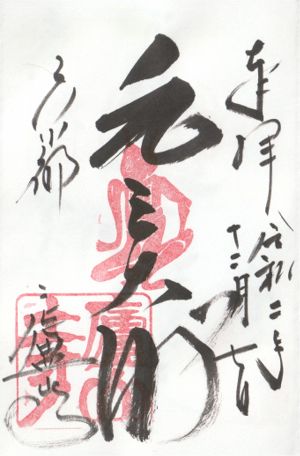 奉拝
令和二年
十二月七日
元三大師
京都
廬山寺